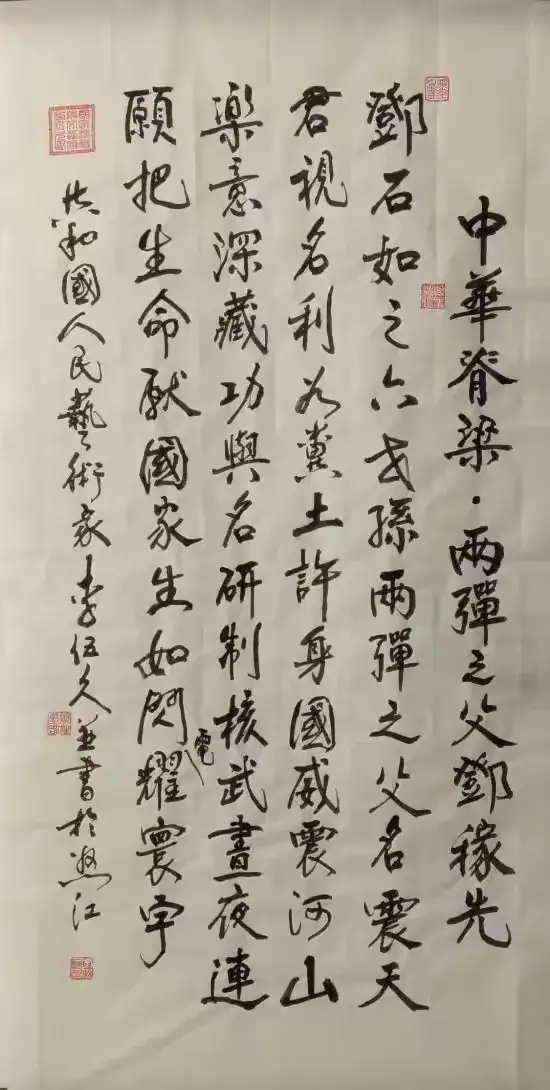 中華脊梁·兩彈之父鄧稼先
鄧石如之六世孫兩彈之父名震天
君視名利為糞土許身國威震河山
楽意深藏功與名研制核武晝夜連
願把生命献國家生如閃電耀寰宇
共和國人民藝術家李伍久並書於江